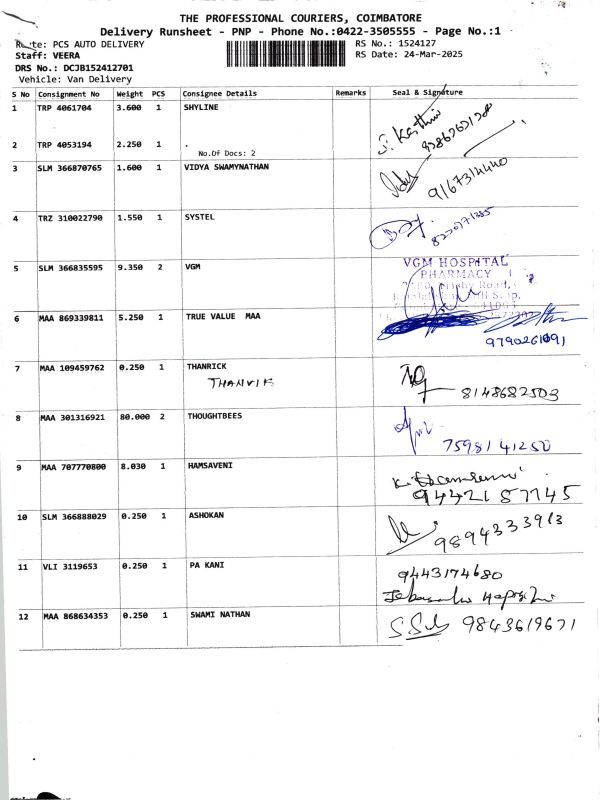 THE PROFESSIONAL COURIERS, COIMBATORE
Delivery Runsheet - PNP - Phone No.:0422-3505555 - Page No.:1
Route: PCS AUTO DELIVERY
RS No.: 1524127
Staff: VEERA
RS Date: 24-Mar-2025
DRS No.: DCJB152412701
Vehicle: Van Delivery
S No Consignment No Weight PCS Consignee Details Remarks Seal & Signature
1 TRP 4061704 3.600 1 SHYLINE
2 TRP 4053194 2.250 1 .
No.Of Docs: 2
3 SLM 366870765 1.600 1 VIDYA SWAMYNATHAN
9167314440
4 TRZ 310022790 1.550 1 SYSTEL
5 SLM 366835595 9.350 2 VGM
VGM HOSPITAL
PHARMACY
6 MAA 869339811 5.250 1 TRUE VALUE MAA
9790261091
7 MAA 109459762 0.250 1 THANRICK
THANVIK
8148682503
8 MAA 301316921 80.000 2 THOUGHTBEES
7598141250
9 MAA 707770800 8.030 1 HAMSAVENI
9442157745
10 SLM 366888029 0.250 1 ASHOKAN
9894333913
11 VLI 3119653 0.250 1 PA KANI
9443174680
12 MAA 868634353 0.250 1 SWAMI NATHAN
9843619671